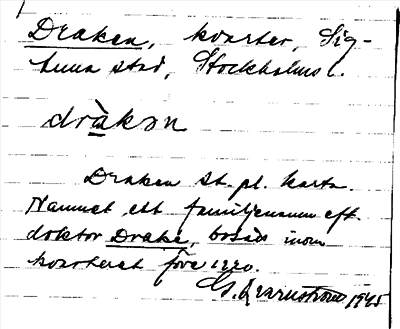 Draken, kvarter, Sig-
tuna stad, Stockholms l.
dràkən
Draken st. pl. karta.
Namnet ett familjenamn eft.
doktor Drake, bosatt inom
kvarteret före 1220.
G. 1945